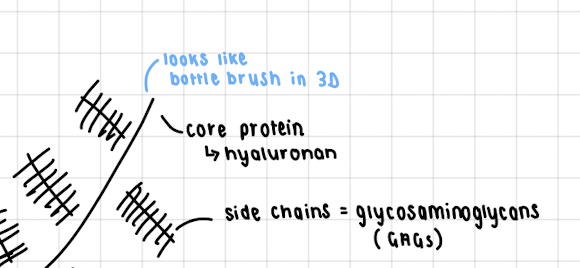 looks like
bottle brush in 3D
core protein
↳ hyaluronan
side chains = glycosaminoglycans
(GAGs)